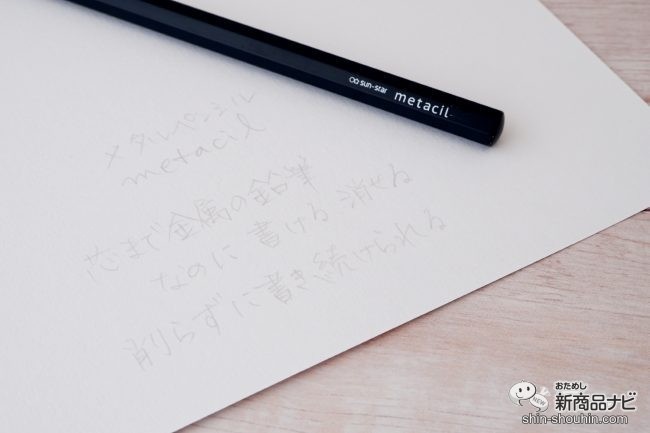 ∞ sun-star metacil
メタルペンシル
metacil
芯まで金属の鉛筆
なのに 書ける 消せる
削らずに書き続けられる
おためし
新商品ナビ
NEW
shin-shouhin.com